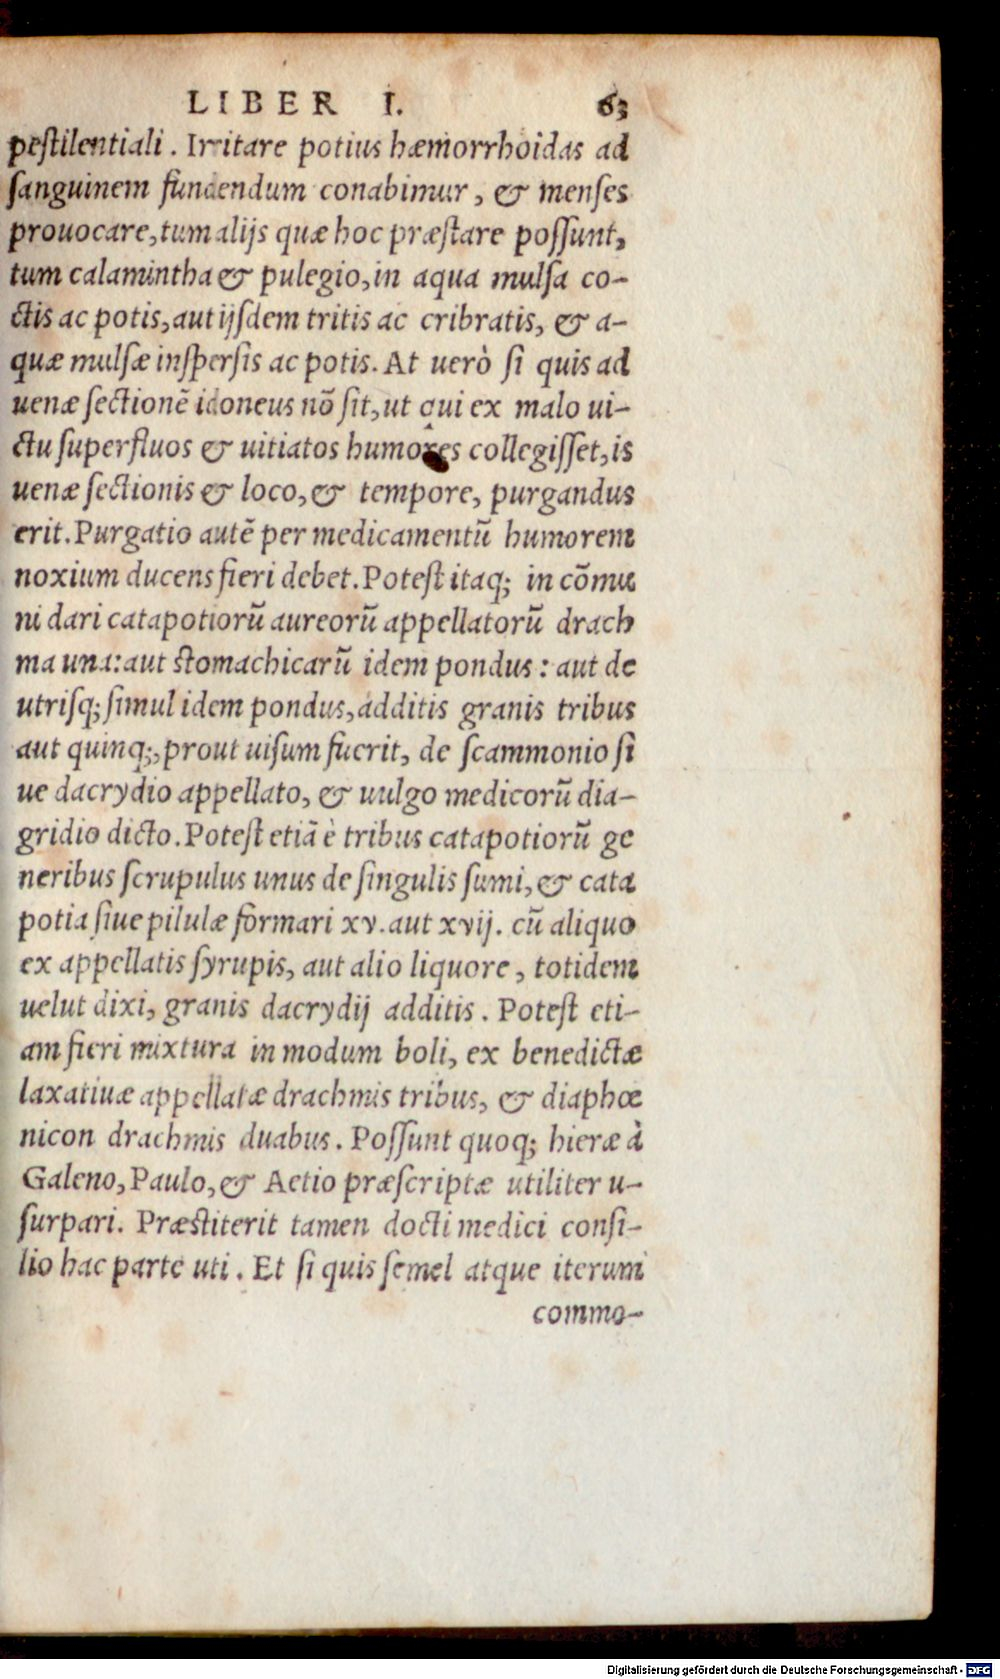 LIBER I. 63
pestilentiali. Irritare potius hæmorrhoidas ad
sanguinem fundendum conabimur, & menses
prouocare, tum alijs quæ hoc præstare possunt,
tum calamintha & pulegio, in aqua mulsa co-
ctis ac potis, aut ijsdem tritis ac cribratis, & a-
quæ mulsæ inspersis ac potis. At uerò si quis ad
uenæ sectionẽ idoneus nõ sit, ut qui ex malo ui-
ctu superfluos & uitiatos humores collegisset, is
uenæ sectionis & loco, & tempore, purgandus
erit. Purgatio autẽ per medicamentũ humorem
noxium ducens fieri debet. Potest itaq; in cõmu
ni dari catapotiorũ aureorũ appellatorũ drach
ma una: aut stomachicarũ idem pondus: aut de
utrisq; simul idem pondus, additis granis tribus
aut quinq;, prout uisum fuerit, de scammonio si
ue dacrydio appellato, & uulgo medicorũ dia-
gridio dicto. Potest etiã è tribus catapotiorũ ge
neribus scrupulus unus de singulis sumi, & cata
potia siue pilulæ formari xv. aut xvij. cũ aliquo
ex appellatis syrupis, aut alio liquore, totidem
uelut dixi, granis dacrydij additis. Potest eti-
am fieri mixtura in modum boli, ex benedictæ
laxatiuæ appellatæ drachmis tribus, & diaphœ
nicon drachmis duabus. Possunt quoq; hieræ à
Galeno, Paulo, & Aetio præscriptæ utiliter u-
surpari. Præstiterit tamen docti medici consi-
lio hac parte uti. Et si quis semel atque iterum
commo-
Digitalisierung gefördert durch die Deutsche Forschungsgemeinschaft - DFG